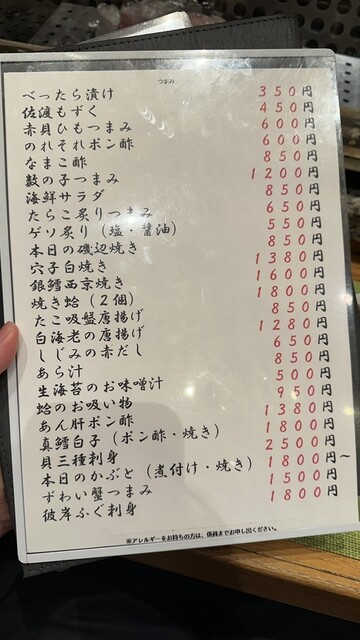 つまみ
べったら漬け 350円
佐渡もずく 450円
赤貝ひもつまみ 600円
のれそれポン酢 600円
なまこ酢 850円
数の子つまみ 1200円
海鮮サラダ 850円
たらこ炙りつまみ 650円
ゲソ炙り（塩・醤油） 550円
本日の磯辺焼き 850円
穴子白焼き 1380円
銀鱈西京焼き 1600円
焼き蛤（２個） 1800円
たこ吸盤唐揚げ 850円
白海老の唐揚げ 1280円
しじみの赤だし 650円
あら汁 850円
生海苔のお味噌汁 500円
蛤のお吸い物 950円
あん肝ポン酢 1380円
真鱈白子（ポン酢・焼き） 1800円
貝三種刺身 2500円
本日のかぶと（煮付け・焼き） 1800円～
ずわい蟹つまみ 1500円
彼岸ふぐ刺身 1800円
※アレルギーをお持ちの方は、係員までお申し出ください。